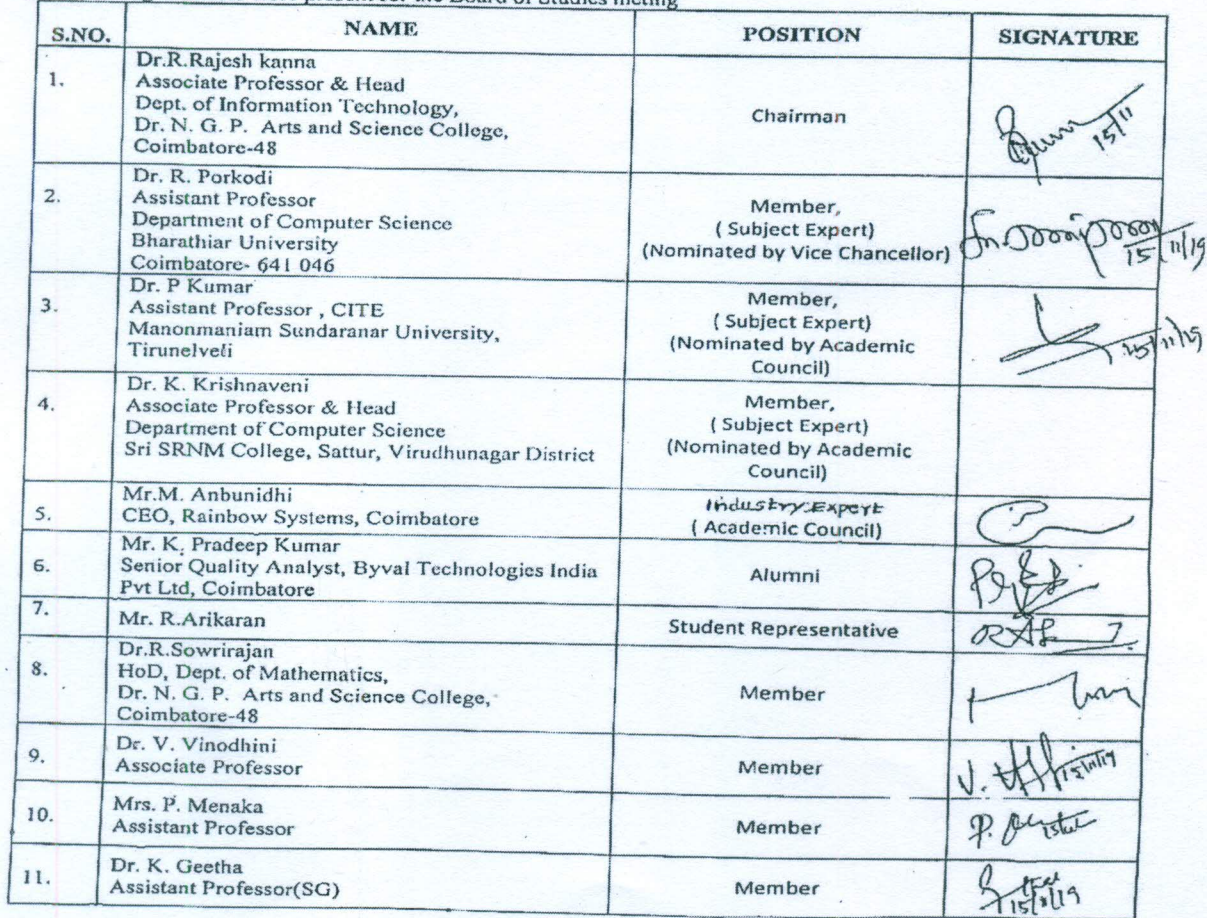 present for the Board of Studies meting
S.NO. NAME POSITION SIGNATURE
1.
Dr.R.Rajesh kanna
Associate Professor & Head
Dept. of Information Technology,
Dr. N. G. P. Arts and Science College,
Coimbatore-48
Chairman
15/11
2.
Dr. R. Porkodi
Assistant Professor
Department of Computer Science
Bharathiar University
Coimbatore- 641 046
Member,
( Subject Expert)
(Nominated by Vice Chancellor)
15/11/19
3.
Dr. P Kumar
Assistant Professor , CITE
Manonmaniam Sundaranar University,
Tirunelveli
Member,
( Subject Expert)
(Nominated by Academic
Council)
15/11/19
4.
Dr. K. Krishnaveni
Associate Professor & Head
Department of Computer Science
Sri SRNM College, Sattur, Virudhunagar District
Member,
( Subject Expert)
(Nominated by Academic
Council)
5.
Mr.M. Anbunidhi
CEO, Rainbow Systems, Coimbatore
Industry Expert
( Academic Council)
6.
Mr. K. Pradeep Kumar
Senior Quality Analyst, Byval Technologies India
Pvt Ltd, Coimbatore
Alumni
7.
Mr. R.Arikaran
Student Representative
8.
Dr.R.Sowrirajan
HoD, Dept. of Mathematics,
Dr. N. G. P. Arts and Science College,
Coimbatore-48
Member
9.
Dr. V. Vinodhini
Associate Professor
Member
V.
15/11/19
10.
Mrs. P. Menaka
Assistant Professor
Member
P.
11.
Dr. K. Geetha
Assistant Professor(SG)
Member
15/11/19